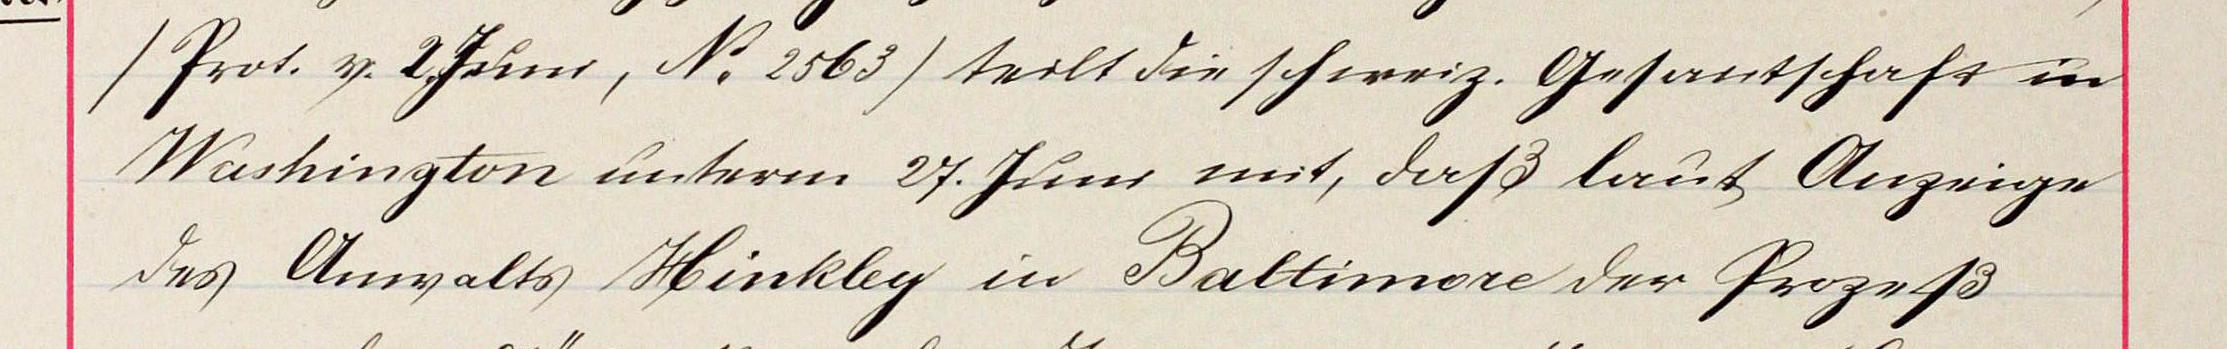 (Prot. v. 2. Juni, No 2563) teilt die schweiz. Gesantschaft in
Washington unterm 27. Juni mit, daß laut Anzeige
des Anwalts Hinkley in Baltimore der Prozeß